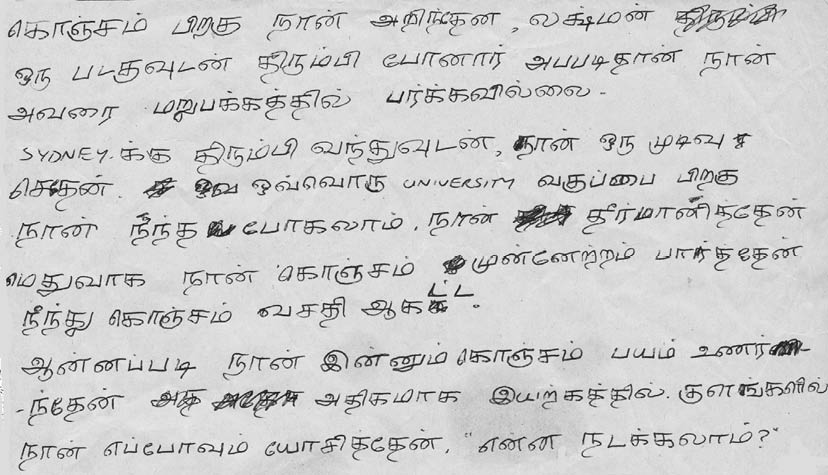 கொஞ்சம் பிறகு நான் அறிந்தேன, லக்ஷ்மன்
ஒரு படகுவுடன் திரும்பி போனார் அபபடிதான் நான்
அவரை மறுபக்கத்தில் பர்க்கவில்லை.
SYDNEY.க்கு திரும்பி வந்துவுடன், நான் ஒரு முடிவு
செதேன். ஒவ்வொரு UNIVERSITY வகுப்பை பிறகு
நான் நீந்த போகலாம். நான் தீர்மானித்தேன்
மெதுவாக நான் கொஞ்சம் முன்னேற்றம் பார்த்தேன்
நீந்து கொஞ்சம் வசதி ஆகட்ட.
ஆன்னப்படி நான் இன்னும் கொஞ்சம் பயம் உணர்
-ந்தேன் அதிகமாக இயற்கத்தில். குளங்களில்
நான் எப்போவும் யோசித்தேன், "என்ன நடக்கலாம்?"